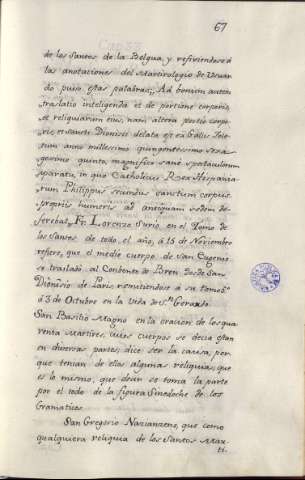 67
de los Santos de la Belgua, y refiriendose á
las anotaciones del Martirologio de Usuar
do puso estas palabras: Ad bonum autem
traslatio inteligenda et de portione corporis,
et reliquiarum eius, nam altera portio corpo-
ris, et Sancti Dionisii delata est ex Gallis Tole-
tum anno millessimo quingentessimo sexa-
gesimo quinto, magnifico sanè spectaculorum
aparatu, in quo Catholicus Rex Hispania-
rum Philippus secundus sanctum corpus
propriis humeris ad antiquam sedem de-
ferebat, Fr. Lorenzo Surio, en el Tomo de
los Santos de todo el año, á 15 de Noviembre
refiere, que el medio cuerpo de San Eugenio
se trasladó al Conbento de Bren desde San
Dionisio de Paris remitiendose a su tomo 5º
á 3 de Octubre en la Vida de Sn. Gerardo.
San Basilio Magno en la oracion de los qua
renta Martires, cuios cuerpos se decia estan
en diversas partes; dice ser la causa, por
que tenian de ellos algunas reliquias, que
es lo mismo, que decir se toma la parte
por el todo de la figura Sinedoche de los
Gramaticos.
San Gregorio Nazianzeno, que como
qualquiera reliquia de los Santos Mar-
ti.